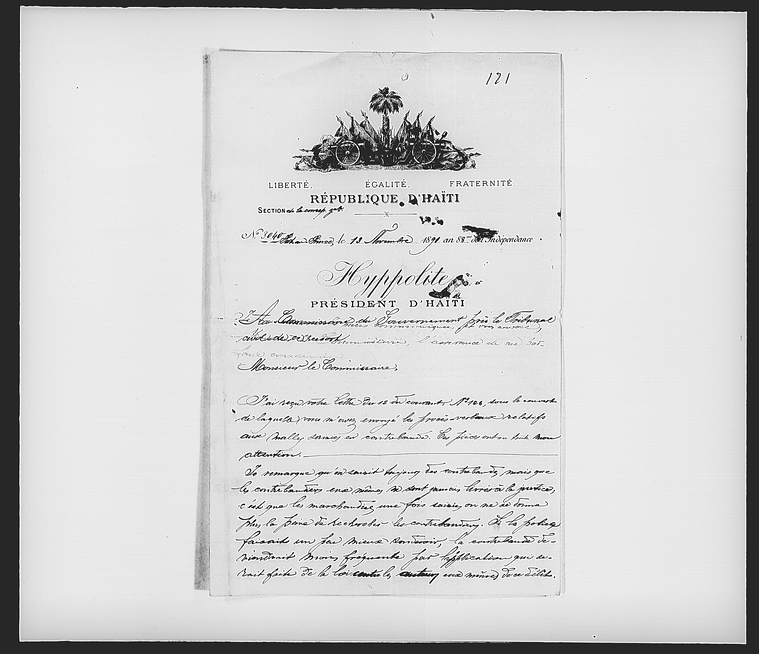 121
LIBERTÉ. ÉGALITÉ. FRATERNITÉ
RÉPUBLIQUE D'HAÏTI
SECTION de la corresp. gle.
No 3040 Port-au-Prince, le 13 Novembre 1891 an 88me de l'Indépendance
Hyppolite
PRÉSIDENT D'HAÏTI
Au Commissaire du Gouvernement près le Tribunal
civil de ce ressort
Monsieur le Commissaire,
J'ai reçu votre lettre du 12 du courant, No 166, sous le couvert
de laquelle vous m'avez envoyé les procès-verbaux relatifs
aux malles saisies en contrebande. Ces pièces ont eu toute mon
attention.
Je remarque qu'on saisit toujours des contrebandes, mais que
les contrebandiers eux mêmes ne sont jamais livrés à la justice,
c'est que les marchandises une fois saisies, on ne se donne
plus la peine de rechercher les contrebandiers. Si la police
faisait un peu mieux son devoir, la contrebande de-
viendrait moins fréquente par l'application qui se-
rait faite de la loi contre les auteurs eux mêmes de ce délit.